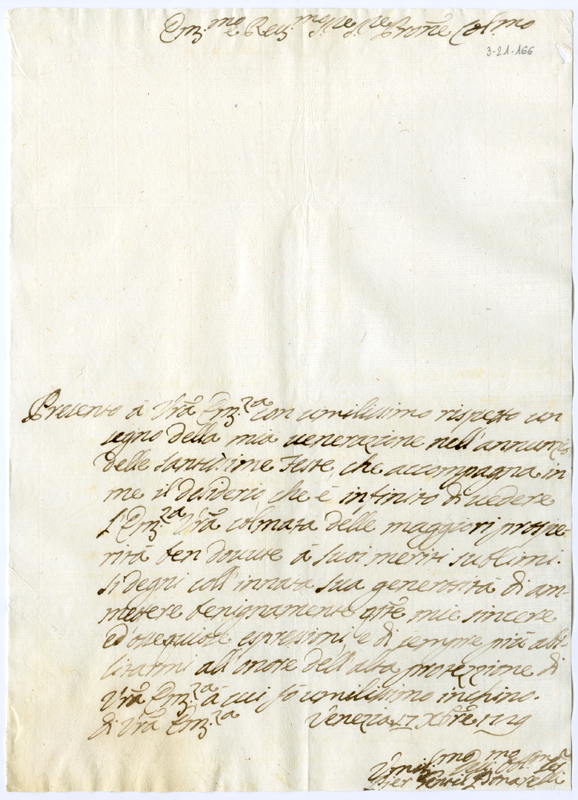 Em.mo e Re.mo Sig.re Sig.re Prone Col.mo
3-21-166
Presento à Vrã Em.za con umilissimo rispetto un
segno della mia uenerazione nell'annunzio
delle santissime Feste, che accompagna in
me il desiderio, che è infinito di uedere
l'Em.za Vrã colmata delle maggiori prospe
rità ben douute à suoi meriti sublimi.
Si degni coll'innata sua generosità di am
mettere benignamente qste mie sincere
ed ossequiose espressioni, e di sempre più abi
litarmi all'onore dell'alta protezzione di
Vrã Em.za à cui fò umilissimo inchino.
Di Vrã Em.za Venezia 17 Xbre 1729
Vmil.mo